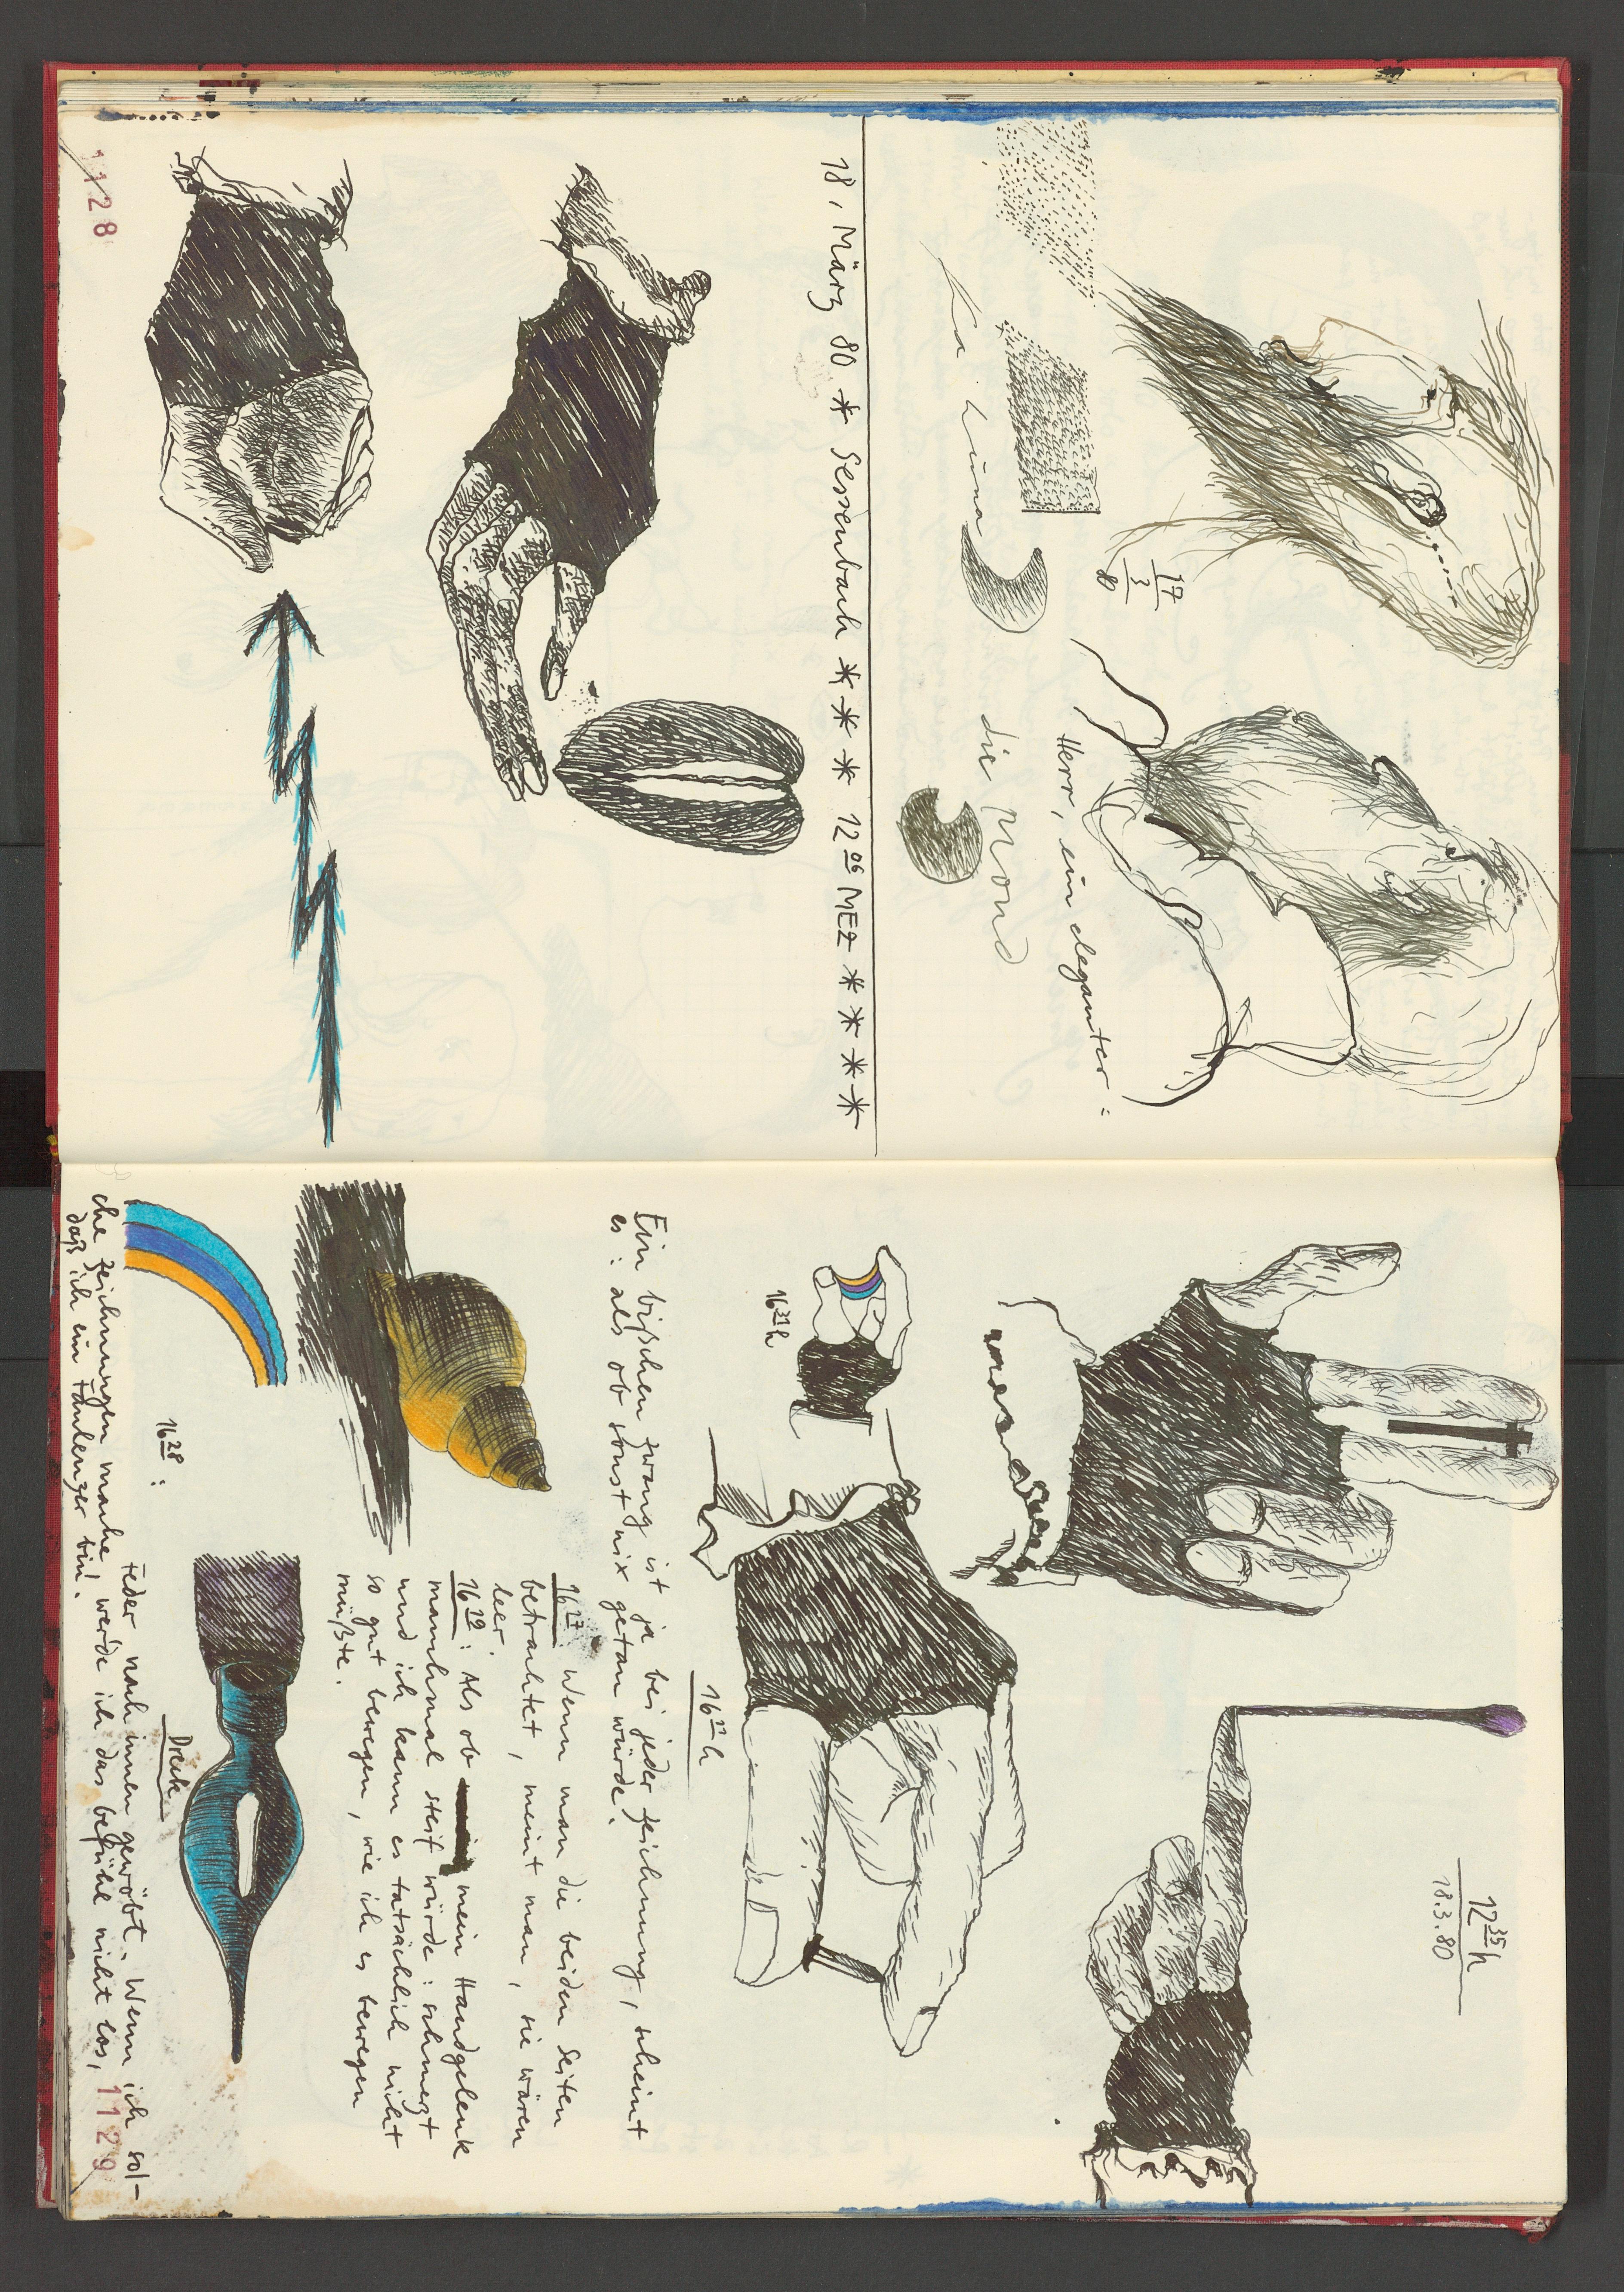 17
3
80
Herr, ein eleganter:
La luna
die Mond
18. März 80 * Gessenbach * * * 12 06 MEZ * * * *
1128
12 35 h
18.3.80
16 21 h
16 22 h
Ein bißchen zwang ist ja bei jeder zeichnung, scheint
es: als ob sonst nix getan würde.
16 27: Wenn man die beiden Seiten
betrachtet, meint man, sie wären
leer.
16 29: Als ob mein Handgelenk
manchmal steif würde: schmerzt
und ich kann es tatsächlich nicht
so gut bewegen, wie ich es bewegen
müßte.
16 28:
Dreck
Feder nach innen gewölbt. Wenn ich sol-
che Zeichnungen mache, werde ich das befühl nicht los,
daß ich ein taulenzer bin!
1129